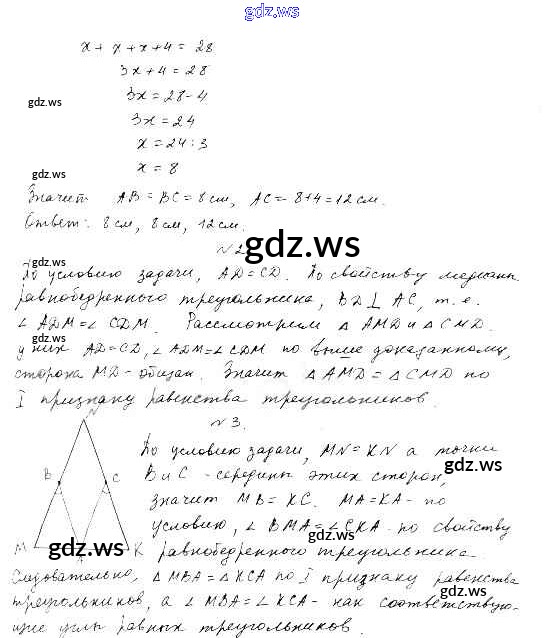 gdz.ws
x + x + x + 4 = 28
3x + 4 = 28
gdz.ws
3x = 28 - 4
3x = 24
x = 24 : 3
x = 8
gdz.ws
Значит AB = BC = 8 см, AC = 8+4 = 12 см.
Ответ: 8 см, 8 см, 12 см.
№ 2
gdz.ws
gdz.ws
По условию задачи, AD = CD. По свойству медианы
равнобедренного треугольника, BD ⊥ AC, т. е.
∠ ADM = ∠ CDM. Рассмотрим △ AMD и △ CMD.
у них AD = CD, ∠ ADM = ∠ CDM по выше доказанному,
gdz.ws
сторона MD - общая. Значит △ AMD = △ CMD по
I признаку равенства треугольников.
№ 3.
N
По условию задачи, MN = KN а точки
gdz.ws
B C
B и C - середины этих сторон,
значит MB = KC. MA = KA - по
условию, ∠ BMA = ∠ CKA - по свойству
gdz.ws
M K
gdz.ws
равнобедренного треугольника.
Следовательно, △ MBA = △ KCA по I признаку равенства
gdz.ws
треугольников, а ∠ MBA = ∠ KCA - как соответствую-
щие углы равных треугольников.
gdz.ws